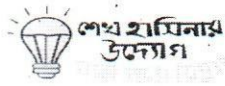 শেখ হাসিনার
উদ্যোগ